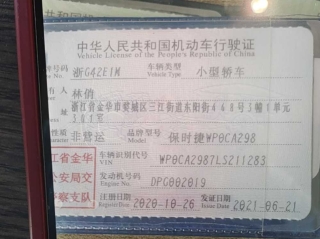 中华人民共和国机动车行驶证
Vehicle License of the People's Republic of China
牌号码 浙G42E1M 车辆类型 小型轿车
Vehicle Type
有 人 林俏
址 浙江省金华市婺城区三江街道东阳街448号3幢1单元
301室
性质 非营运 品牌型号 保时捷WP0CA298
Model
江省金华
公安局交
警察支队
车辆识别代号 WP0CA2987LS211283
VIN
发动机号码 DPG002019
Engine No.
注册日期 2020-10-26 发证日期 2021-06-21
Register Date Issue Date